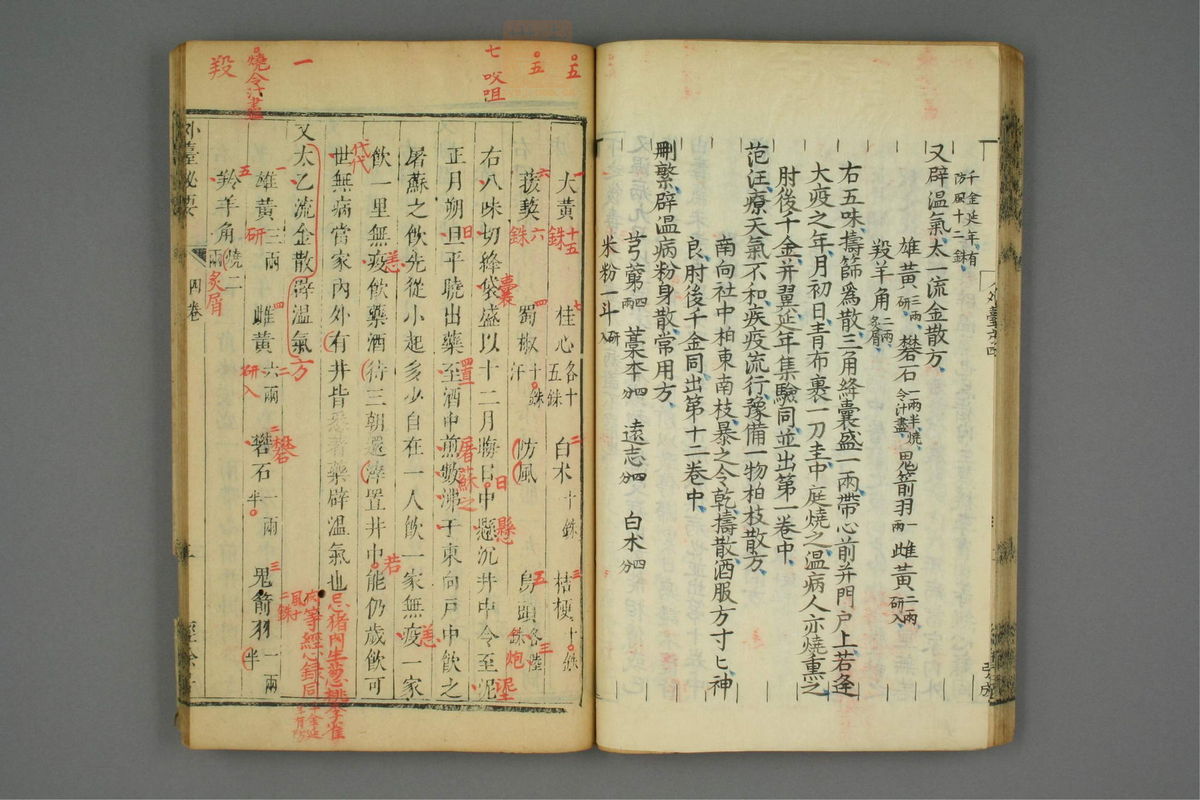 千金延年有
防風十二銖
又辟温氣太一流金散方
雄黄三兩研 礬石一兩半燒令汁盡 鬼箭羽一兩 雌黄二兩研入
羖羊角二兩炙屑
右五味擣篩爲散三角絳囊盛一兩帶心前并門户上若逢
大疫之年月初日青布裹一刀圭中庭燒之温病人亦燒熏之
肘後千金并翼延年集驗同並出第一卷中
范汪療天氣不和疾疫流行豫備一物柏枝散方
南向社中柏東南枝暴之令乾擣散酒服方寸匕神
良肘後千金同出第十二卷中
刪繁辟温病粉身散常用方
芎藭四兩 藁本四分 遠志四分 白朮四分
米粉一斗研入
大黄十五銖 桂心各十五銖 白朮十銖 桔梗十銖
菝葜六銖 蜀椒十銖汗 防風 烏頭各陸銖炮
右八味切絳袋盛以十二月晦日中懸沉井中令至泥
正月朔旦平曉出藥至酒中煎數沸于東向户中飲之
屠蘇之飲先從小起多少自在一人飲一家無疫一家
飲一里無疫飲藥酒待三朝還滓置井中能仍歲飲可
世無病當家内外有井皆悉著藥辟温氣也
忌猪肉生葱桃李雀
肉等經心録同
又太乙流金散辟温氣方
雄黄三兩 雌黄六兩 礬石一兩半 鬼箭羽一兩半
羚羊角燒二兩
外臺秘要 四卷
五
五
七 㕮咀
一
燒令汁盡
羖
研
炙屑
研入
礬
代代
恙
日
囊
置
屠蘇之
日
懸
若
恙
埿